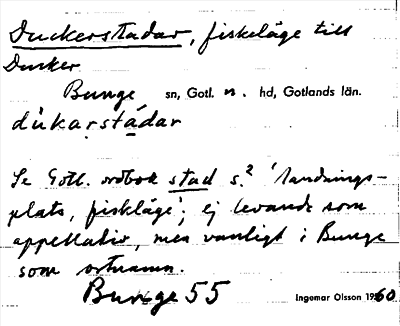 Duckerstadar, fiskeläge till
Ducker
Bunge sn, Gotl. n. hd, Gotlands län.
du̇kaṛstádar
Se Gotl. ordbok stad s.² 'landnings-
plats, fiskläge'; ej levande som
appellativ, men vanligt i Bunge
som ortnamn.
Bunge 55 Ingemar Olsson 1960